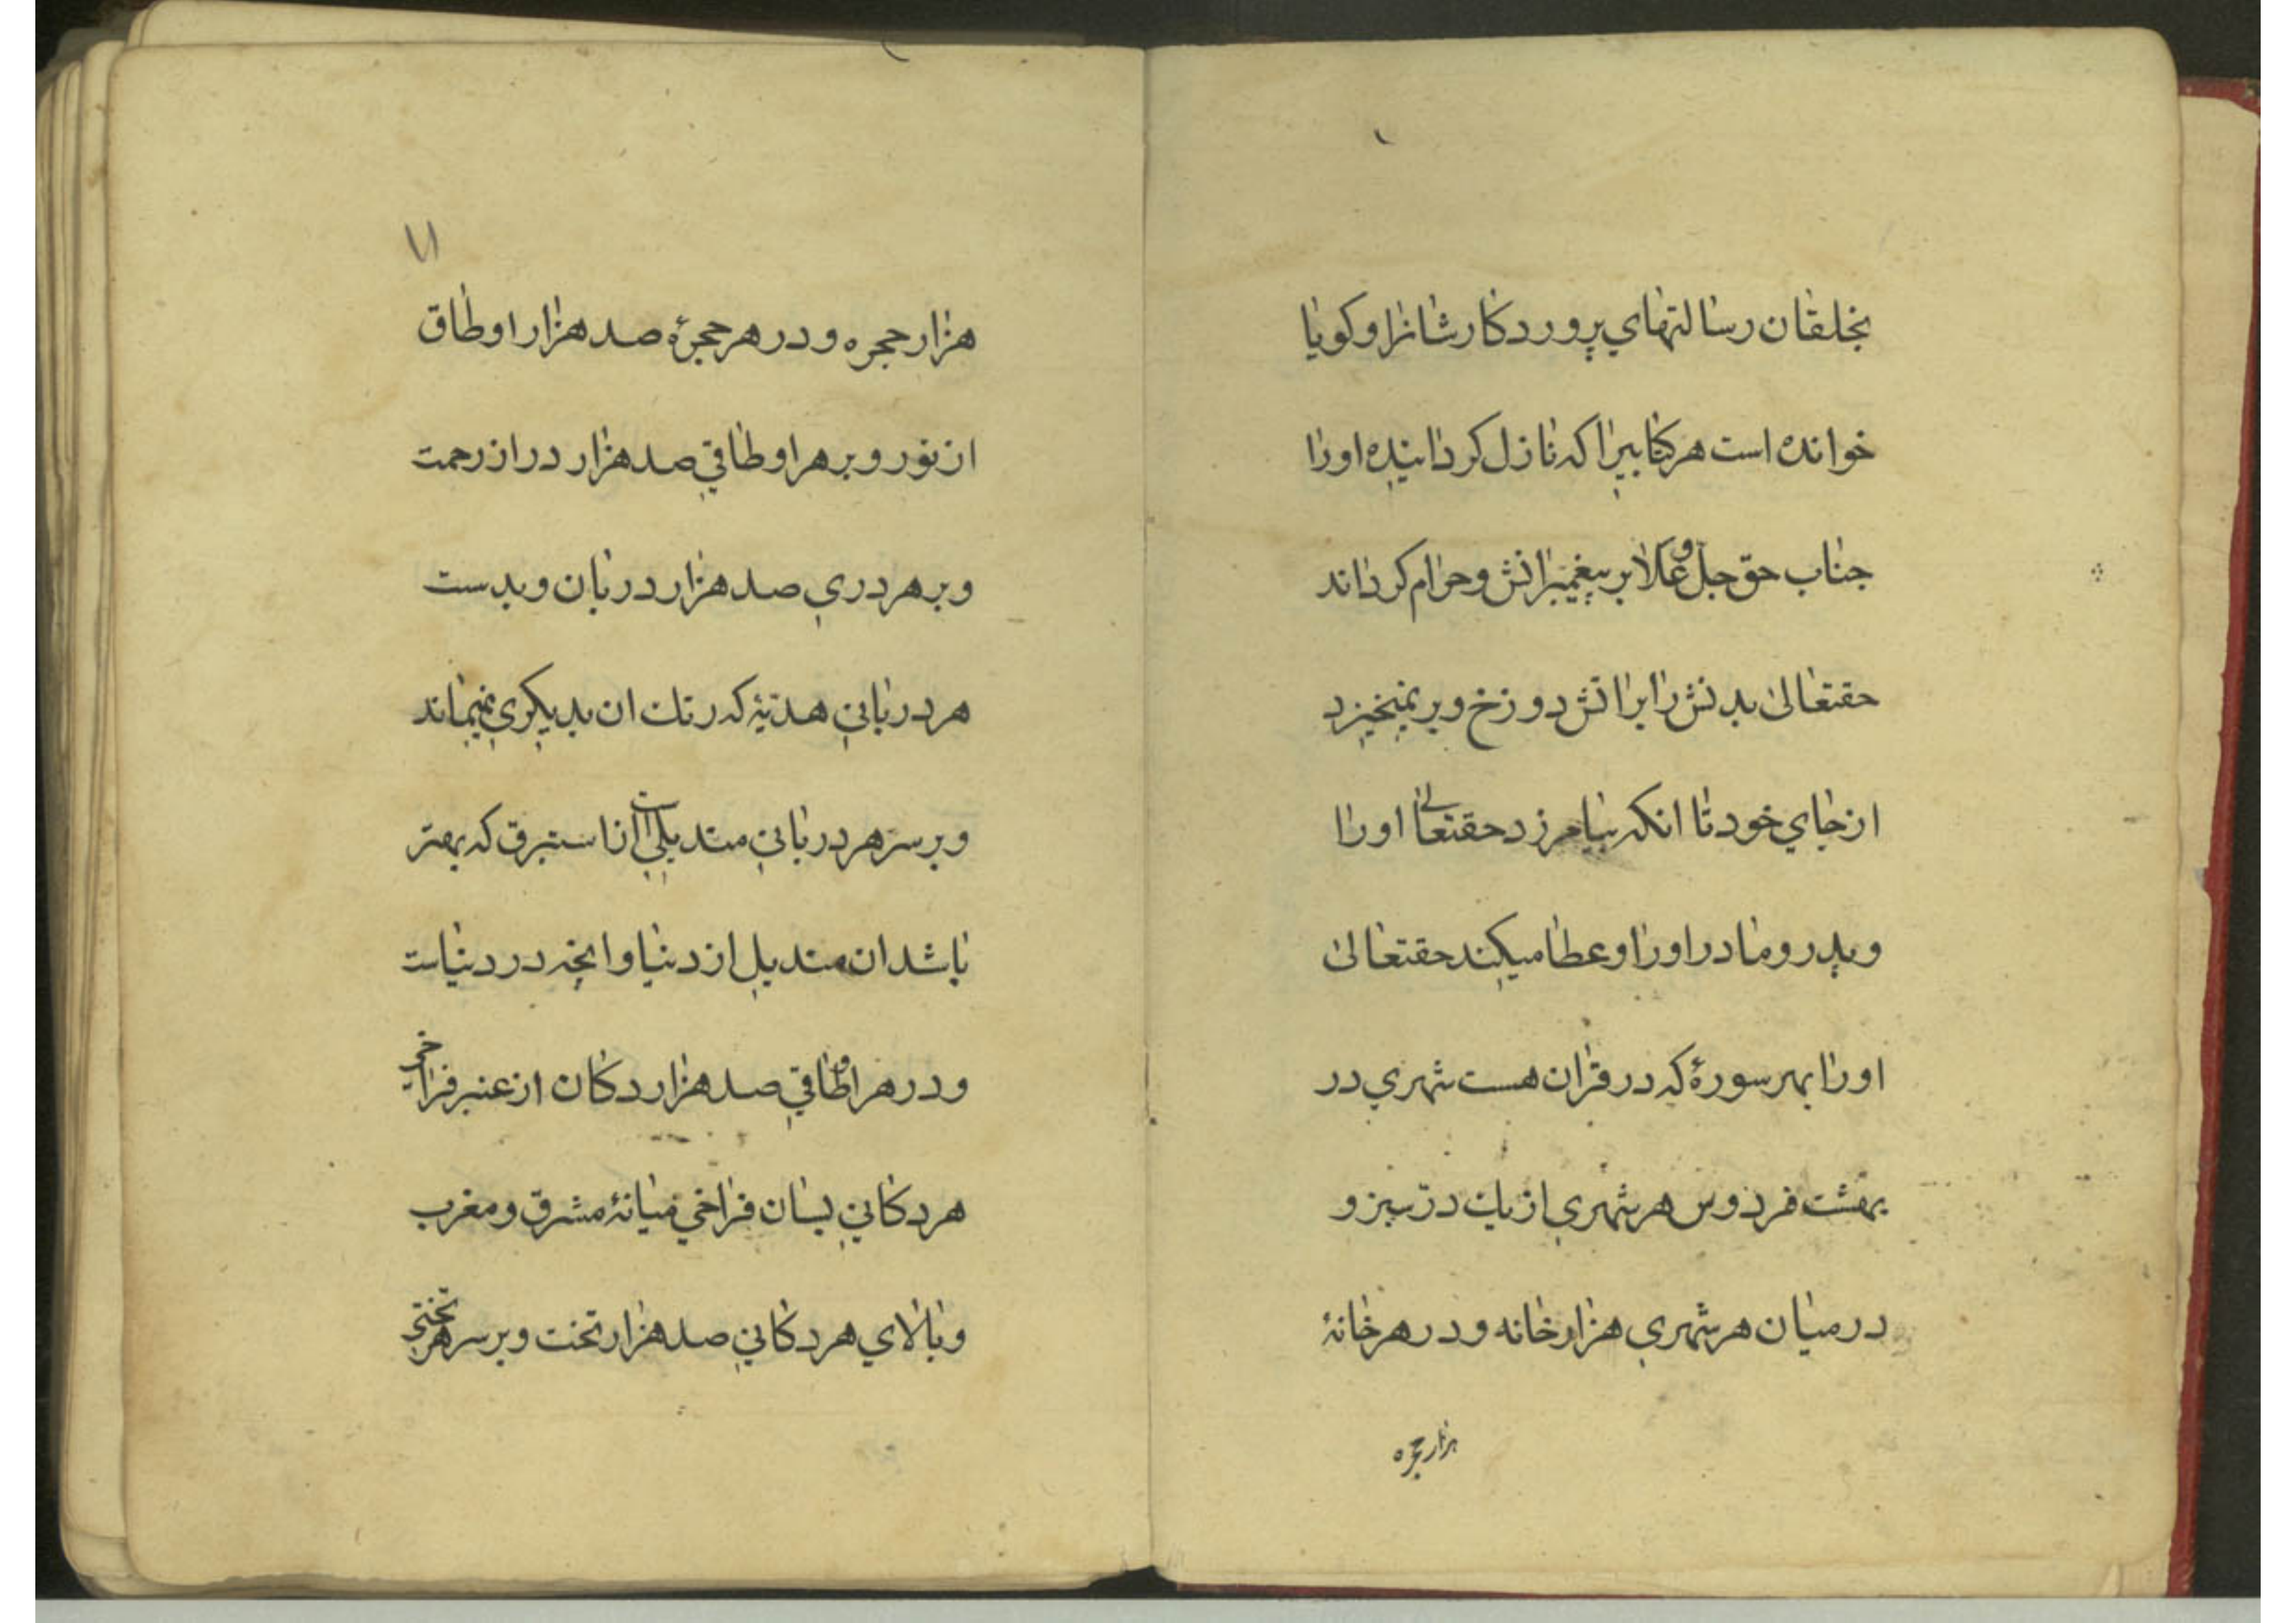 بخلقان رسالتهاي پروردکارشانرا وکویا
خوانده است هر کتابیرا که نازل کردانیده اورا
جناب حق جل و علا بر پیغمبرانش و حرام کرداند
حقتعالی بدنش را بر اتش دوزخ و بر نمیخیزد
از جاي خود تا انکه بیامرزد حقتعالی اورا
و پدر و مادر اورا و عطا میکند حقتعالی
اورا بهر سورهٔ که در قران هست شهري در
بهشت فردوس هر شهري از یك در سبز و
در میان هر شهري هزار خانه و در هر خانهٔ
هزار حجره
١٧
هزار حجره و در هر حجرهٔ صد هزار اوطاق
از نور و بر هر اوطاقي صد هزار در از رحمت
و بر هر دري صد هزار دربان و بدست
هر درباني هدیهٔ که رنك ان بدیکري نمیماند
و بر سر هر درباني مندیلي است از استبرق که بهتر
باشد ان مندیل از دنیا و انچه در دنیاست
و در هر اوطاقي صد هزار دکان از عنبر فراخي
هر دکاني بسان فراخي میانهٔ مشرق و مغرب
و بالاي هر دکاني صد هزار تخت و بر سر هر تختي